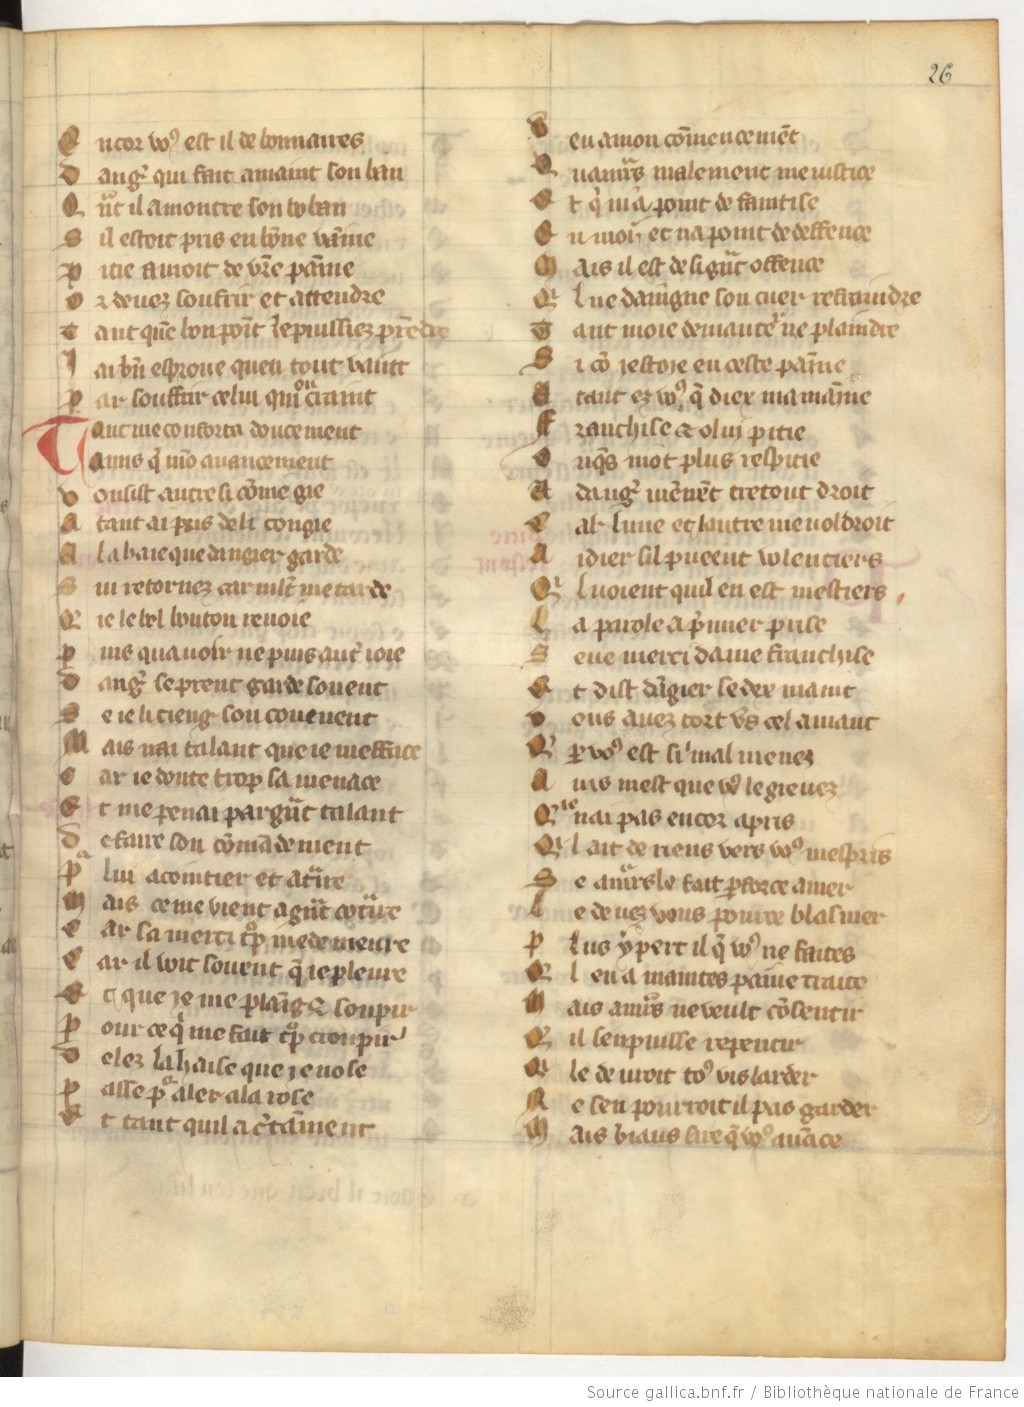 26
E ncor vo9 est il de bonnaires
D ang' qui fait amaint son ban
Q ñt il a montre son boban
S il estoit pris en bõne vaĩne
P itie auroit de vr̃e paĩne
O r deuez soufrir et attendre
T ant que bon poĩt le puissiez prẽdre
I ai bñ esproue que en tout vaint
P ar souffrir celui qui craint
T ant me conforta doucement
A mis q̃ mõ auancement
V ousist autresi cõme gie
A tant ai pris de li congie
A la haie que dangier garde
S ui retornez car mlt̃ me tarde
Q ie le bel bouton reuoie
P uis quauoir ne puis autr̃ ioie
D ang' se prent garde souent
S e ie li tieng son couenent
M ais nai talant que ie mefface
C ar ie doute trop sa menace
E t me penai par gñt talant
D e faire son cõmãdement
P lui acointier et atr̃ire
M ais ce me vient a gñt cõtr̃ire
C ar sa merci tp̃ me demeure
C ar il voit souent q̃ ie pleure
E t que je me plaĩg & soupir
P our ce q̃ me fait tp̃ croupir
D elez la haise que je nose
P asse p aler a la rose
E t tant quil a c̃taĩment
V eu a mon cõmencemẽt
Q uamr̃s malement me iustice
E t q̃ ni a point de faintise
E n moi et na point de deffence
M ais il est de si gñt offence
Q l ne daingne son cuer refraindre
T ant moie demanter ne plaindre
S i cõ jestoje en ceste paĩne
A tant ez vo9 q̃ diex mamaĩne
F ranchise & o lui pitie
O nq̃s mot plus respitie
A dang' uiñẽt tretout droit
C ar lune et lautre me voldroit
A idier sil pueent volentiers
Q l uoient quil en est mestiers
L a parole a p̃mier prise
S eue merci dame franchise
E t dist dãgier se dex maint
V ous auez tort v̾s cel amant
Q p vo9 est si mal menez
A uis mest que vo9 le gieuez
Q ie nai pas encor apris
Q l ait de riens vers vo9 mespris
S e amr̃s le fait p force amer
L e deuez vous pour ce blasmer
P lus y pert il q̃ vo9 ne faites
Q l en a maintes paine traite
M ais amr̃s ne veult cõsentir
Q il sen puisse repentir
Q le deuroit to9 vis larder
N e sen pourroit il pas garder
M ais biaus sire q̃ vo9 auãce
Source gallica.bnf.fr / Bibliothèque nationale de France